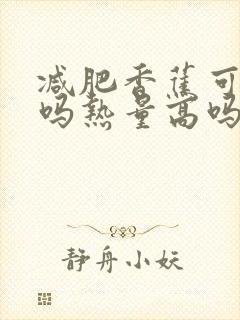 减肥香蕉可
吗热量高吗
静舟小妖